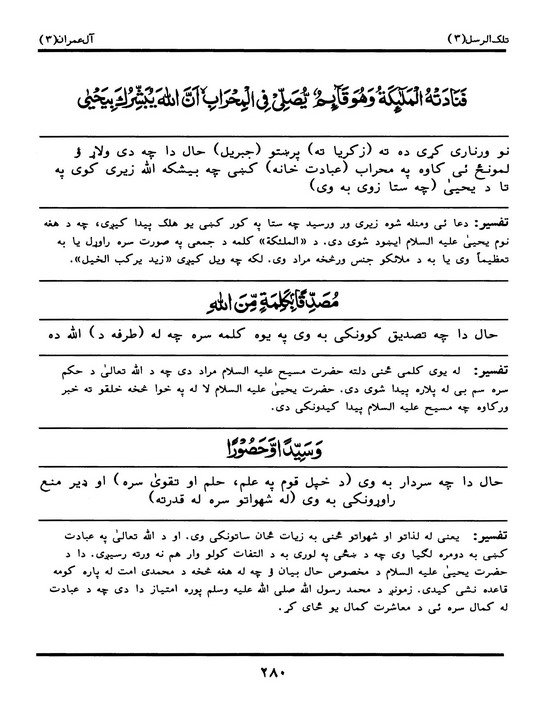 تلك الرسل(٣)
آل عمران(٣)
فَنَادَتْهُ الْمَلٰٓئِكَةُ وَهُوَ قَآئِمٌ يُّصَلِّىْ فِى الْمِحْرَابِ ۙ اَنَّ اللّٰهَ يُبَشِّرُكَ بِيَحْيٰى
نو ورناری کړی ده ته (زکریا ته) پرښتو (جبریل) حال دا چه دی ولاړ ؤ
لمونځ ئی کاوه په محراب (عبادت خانه) کښی چه بیشکه الله زیری کوی په
تا د یحییٰ (چه ستا زوی به وی)
تفسیر: دعا ئی ومنله شوه زیری ور ورسید چه ستا په کور کښی یو هلک پیدا کیږی، چه د هغه
نوم یحییٰ علیه السلام ایښود شوی دی. د «الملئکة» کلمه د جمعی په صورت سره راوړل یا به
تعظیماً وی یا به د ملائکو جنس ورڅخه مراد وی. لکه چه ویل کیږی «زید یرکب الخیل».
مُصَدِّقًۢا بِكَلِمَةٍ مِّنَ اللّٰهِ
حال دا چه تصدیق کوونکی به وی په یوه کلمه سره چه له (طرفه د) الله ده
تفسیر: له یوی کلمی څنی دلته حضرت مسیح علیه السلام مراد دی چه د الله تعالیٰ د حکم
سره سم بی له پلاره پیدا شوی دی. حضرت یحییٰ علیه السلام لا له په خوا څخه خلقو ته خبر
ورکاوه چه مسیح علیه السلام پیدا کیدونکی دی.
وَسَيِّدًا وَّحَصُوْرًا
حال دا چه سردار به وی (د خپل قوم په علم، حلم او تقویٰ سره) او ډیر منع
راوړونکی به وی (له شهواتو سره له قدرته)
تفسیر: یعنی له لذاتو او شهواتو څنی به زیات ځان ساتونکی وی. او د الله تعالیٰ په عبادت
کښی به دومره لګیا وی چه د ښځی په لوری به د التفات کولو وار هم نه ورته رسیږی. دا د
حضرت یحییٰ علیه السلام د مخصوص حال بیان ؤ چه له هغه څخه د محمدی امت له پاره کومه
قاعده نشی کیدی. زمونږ د محمد رسول الله صلی الله علیه وسلم پوره امتیاز دا دی چه د عبادت
له کمال سره ئی د معاشرت کمال یو ځای کړ.
٢٨٠